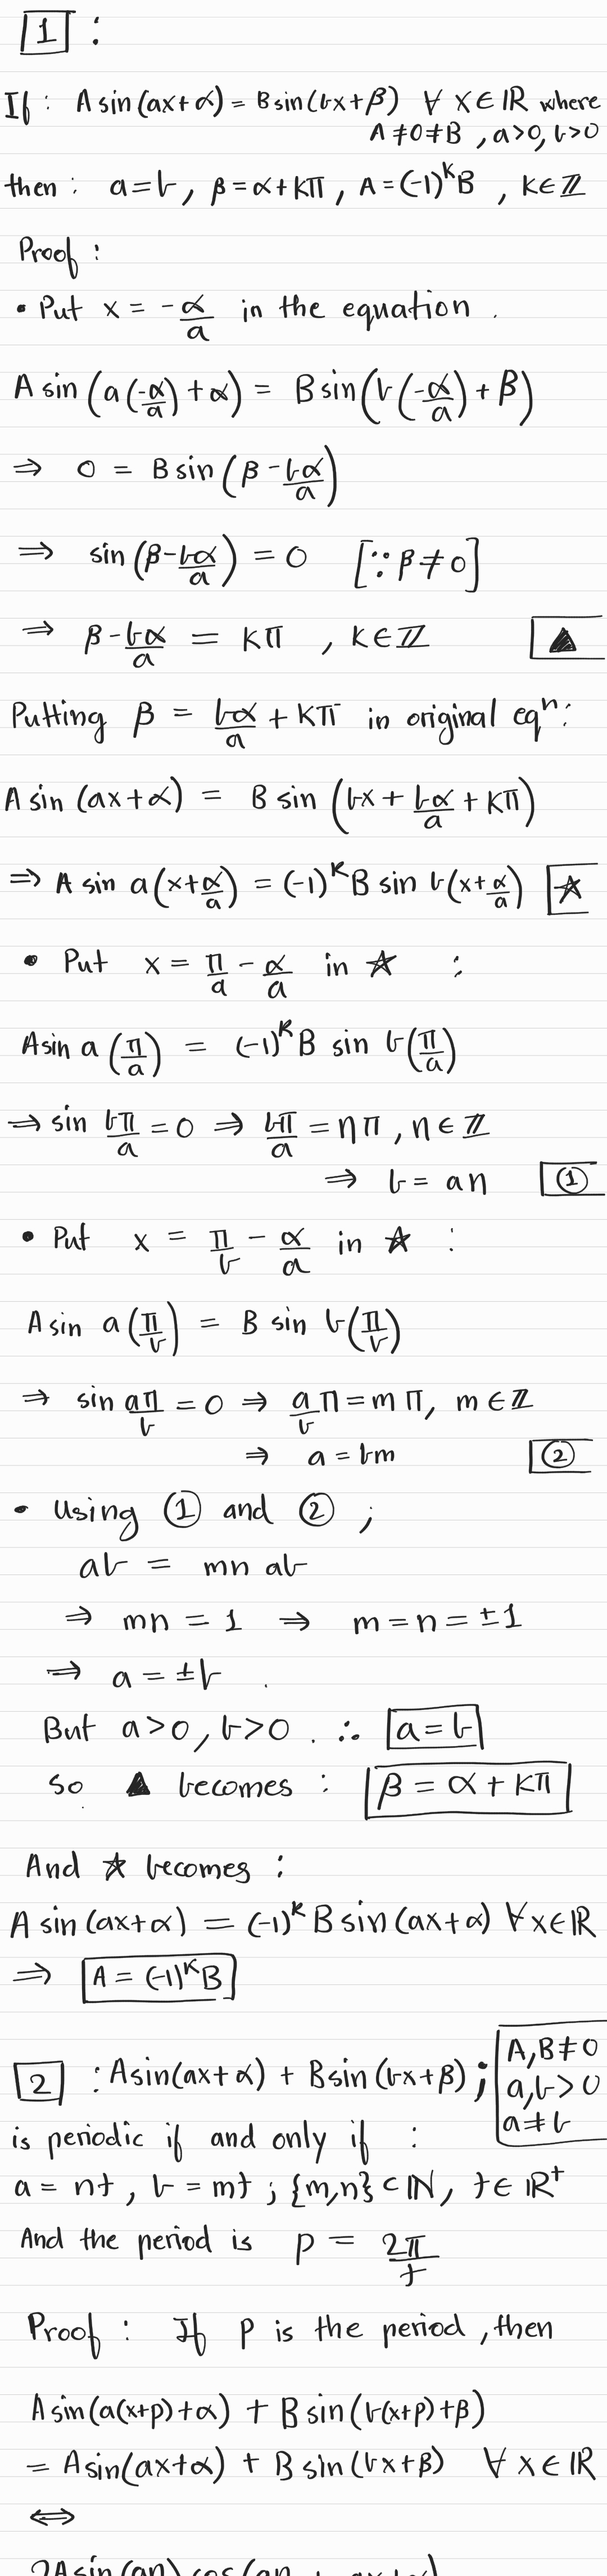 1 :
If : A sin(ax+α) = B sin(bx+β) ∀ x∈ℝ where
A≠0≠B , a>0, b>0
then : a=b , β=α+kπ , A=(-1)^k B , k∈ℤ
Proof :
• Put x = -α/a in the equation .
A sin (a(-α/a)+α) = B sin(b(-α/a)+β)
⇒ 0 = B sin (β - bα/a)
⇒ sin (β-bα/a) = 0 [∵ β≠0]
⇒ β-bα/a = kπ , k∈ℤ ▲
Putting β = bα/a + kπ in original eqⁿ:
A sin (ax+α) = B sin (bx + bα/a + kπ)
⇒ A sin a(x+α/a) = (-1)^k B sin b(x+α/a) ☆
• Put x = π/a - α/a in ☆ :
A sin a(π/a) = (-1)^k B sin b(π/a)
⇒ sin bπ/a = 0 ⇒ bπ/a = nπ , n∈ℤ
⇒ b = an ①
• Put x = π/b - α/a in ☆ :
A sin a(π/b) = B sin b(π/b)
⇒ sin aπ/b = 0 ⇒ a/b π = m π, m∈ℤ
⇒ a = bm ②
• Using ① and ② ;
ab = mn ab
⇒ mn = 1 ⇒ m = n = ±1
⇒ a = ±b .
But a>0, b>0 . ∴ a = b
So ▲ becomes : β = α + kπ
And ☆ becomes :
A sin (ax+α) = (-1)^k B sin (ax+α) ∀ x∈ℝ
⇒ A = (-1)^k B
2 : A sin(ax+α) + B sin (bx+β) ; A,B≠0
a,b>0
a≠b
is periodic if and only if :
a = nt , b = mt ; {m,n} ⊂ ℕ , t∈ℝ⁺
And the period is p = 2π/t
Proof : If p is the period , then
A sin(a(x+p)+α) + B sin (b(x+p)+β)
= A sin(ax+α) + B sin (bx+β) ∀ x∈ℝ
⇔